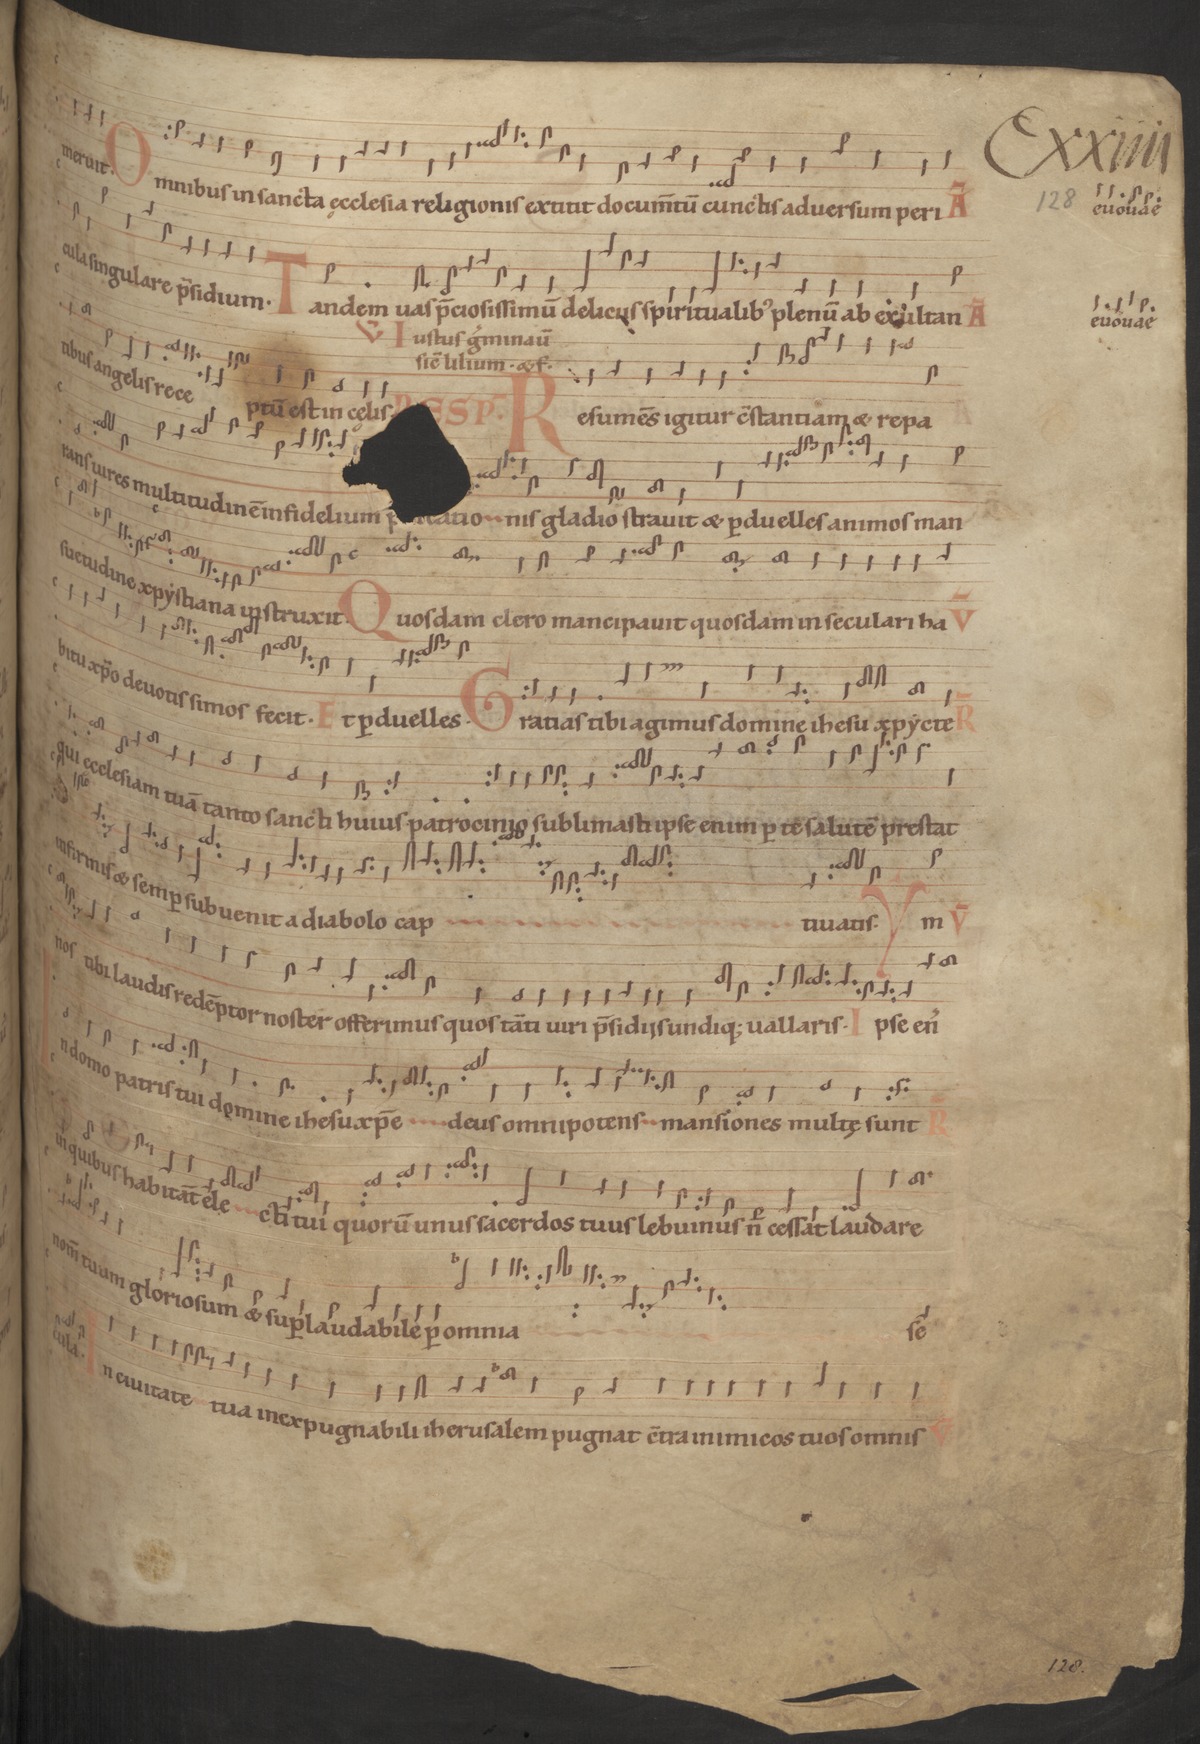 Cxxiiii
meruit. Omnibus in sancta ęcclesia religionis extitit docum̄tū cunctis aduersum peri Ā
128 euouae
cula singulare p̄sidium. Tandem uas p̄ciosissimū deliciis spiritualib᾽ plenū ab exultan Ā
euouae
V Iustus g̃minaū
sic̄ lilium. & f̄.
tibus angelis rece ptū est in cęlis. RESP. Resumēs igitur c̄stantiam & repa
rans uires multitudinē infidelium p̄ dicatio nis gladio strauit & p̱duelles animos man
suetudine xpȳstiana instruxit. Quosdam clero mancipauit quosdam in seculari ha V̄
bitu xp̄o deuotissimos fecit. Et p̱duelles. Gratias tibi agimus domine ihesu xpȳcte R̄
qui ecclesiam tuā tanto sancti huius patrocinio sublimasti ipse enim p̱ tē salutē prestat
infirmis & semp̱ subuenit a diabolo cap tiuatis. Ym V̄
nos tibi laudis redēptor noster offerimus quos tāti uiri p̄sidiis undiq; uallaris. Ipse en̄
In domo patris tui domine ihesu xp̄e deus omnipotens mansiones multę sunt R̄
in quibus habitāt ele cti tui quorū unus sacerdos tuus lebuinus n̄ cessat laudare
nom̄ tuum gloriosum & sup̱laudabile p̱ omnia sē
cula. In ciuitate tua inexpugnabili iherusalem pugnat c̄tra inimicos tuos omnis V
128.